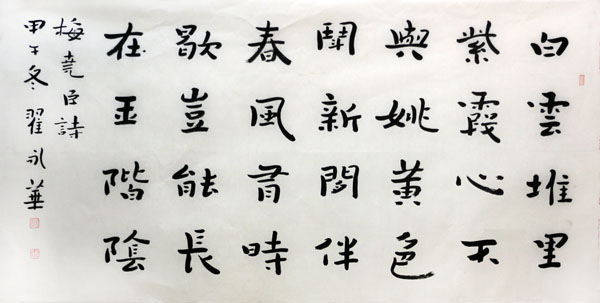 白雲堆里
紫霞心不
與姚黄色
鬪新閒伴
春風有時
歇豈能長
在玉階陰
梅堯臣詩
甲午冬翟永華